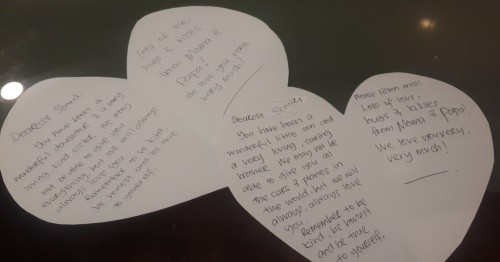 Dearest
You have been a
wonderful daughter & a very
loving, kind sister. We may
not be able to give you
everything, but we will always
always give you love.
Remember to be kind
be honest and be true
to yourself.
Lots of love,
hugs & kisses
from Mama &
Papa!
We love you very
very much!
Dearest
You have been a
wonderful little son and
a very loving, caring
brother. We may not be
able to give you all
the cars & planes in
the world, but we will
always, always love
you.
Remember to be
kind, be honest
and be true
to yourself.
Please listen well!
Lots of love,
hugs & kisses
from Mama & Papa!
We love you very,
very much!